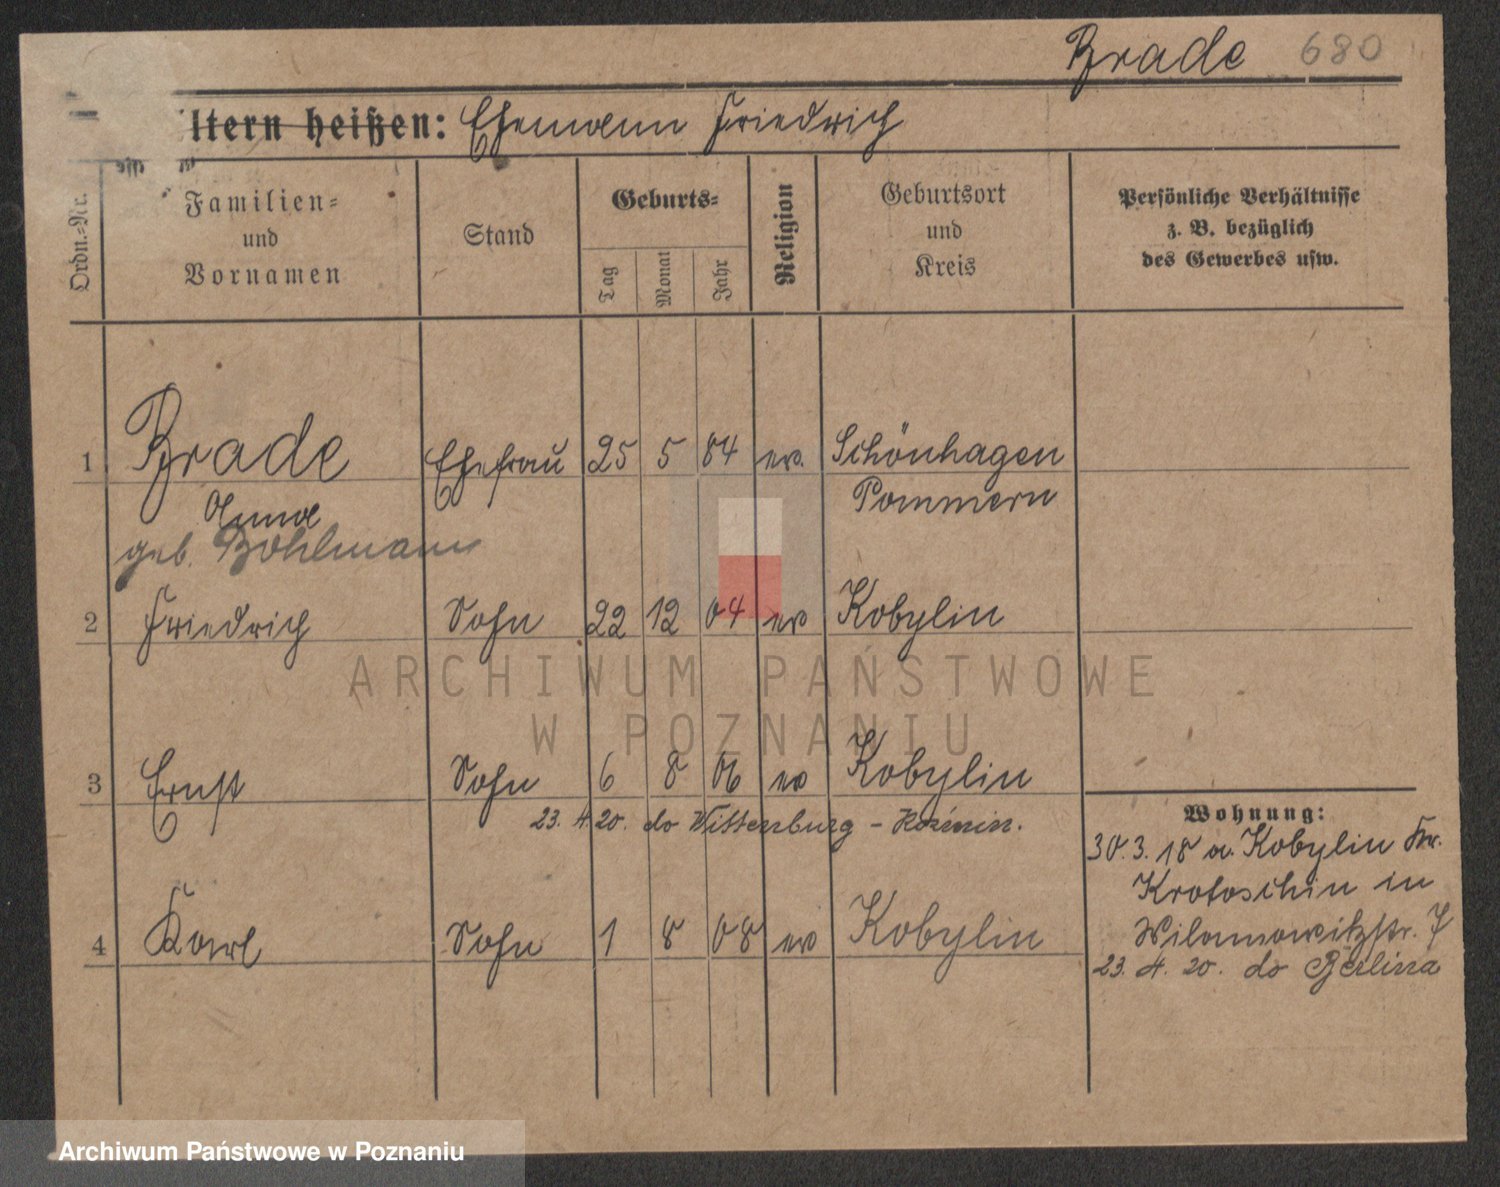 Brade 680
ltern heißen: Ehemann Friedrich
Ordn.-Nr.
Familien-
und
Vornamen
Stand
Geburts-
Tag
Monat
Jahr
Religion
Geburtsort
und
Kreis
Persönliche Verhältnisse
z. B. bezüglich
des Gewerbes usw.
1 Brade Ehefrau 25 5 84 ev. Schönhagen
Anna Pommern
geb. Bohlmann
2 Friedrich Sohn 22 12 04 ev Kobylin
ARCHIWUM PAŃSTWOWE
W POZNANIU
3 Ernst Sohn 6 8 06 ev Kobylin
23. 4. 20. do Wittenburg -
4 Karl Sohn 1 8 08 ev Kobylin
Wohnung:
30. 3. 18 a. Kobylin Kr.
Krotoschin in
Wilamowitzstr. 7
23. 4. 20. do Berlina
Archiwum Państwowe w Poznaniu